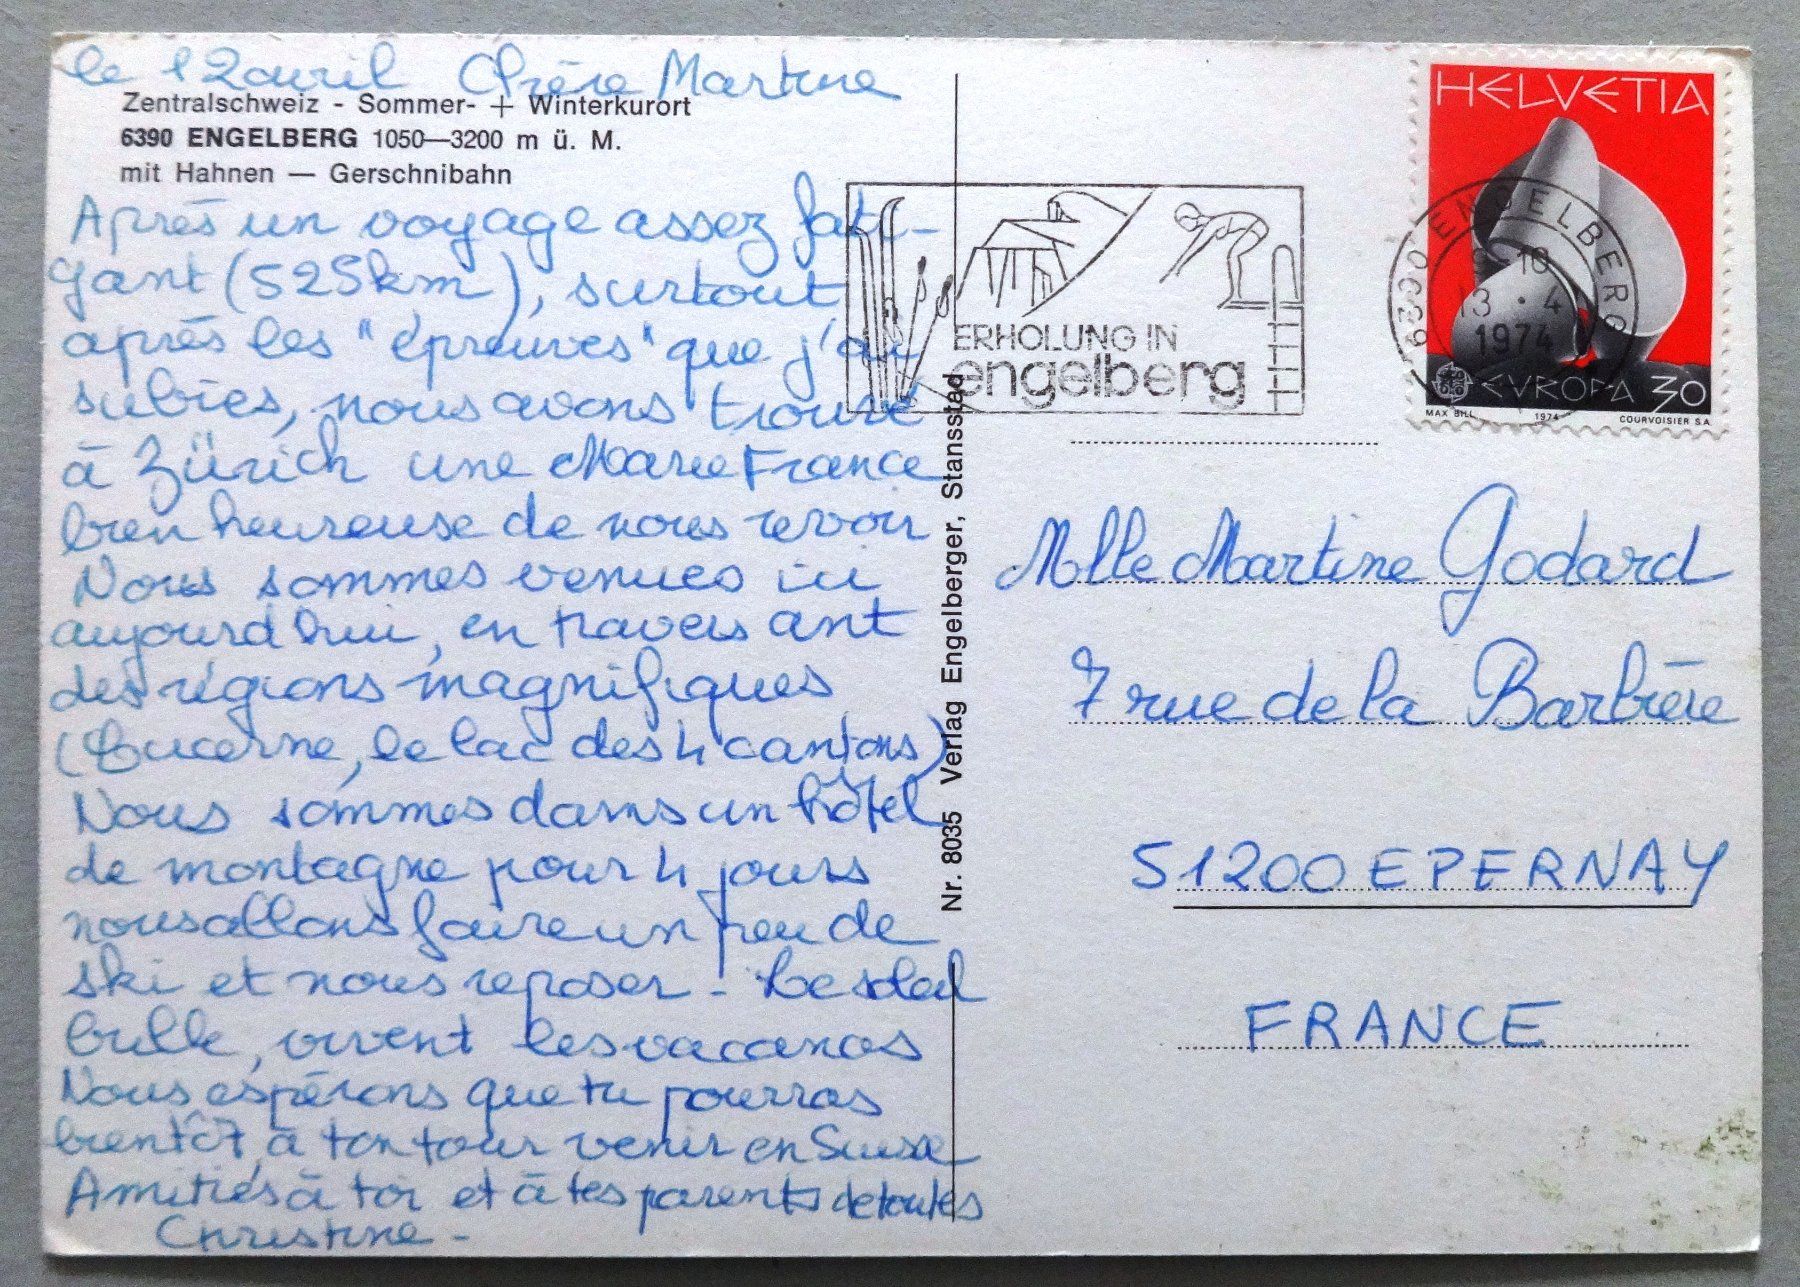 le 12 avril Chère Martine
Zentralschweiz - Sommer- + Winterkurort
6390 ENGELBERG 1050—3200 m ü. M.
mit Hahnen — Gerschnibahn
Après un voyage assez fati-
gant (525km), surtout
après les "épreuves" que j'ai
subies, nous avons trouvé
à Zürich une Marie France
bien heureuse de nous revoir
Nous sommes venues ici
aujourd'hui, en traversant
des régions magnifiques
(Lucerne, le lac des 4 cantons)
Nous sommes dans un hôtel
de montagne pour 4 jours
nous allons faire un peu de
ski et nous reposer - Le soleil
brille, vivent les vacances
Nous espérons que tu pourras
bientôt, à ton tour venir en Suisse
Amitiés à toi et à tes parents de toutes
Christine -
Nr. 8035 Verlag Engelberger, Stansstad
ERHOLUNG IN
engelberg
HELVETIA
6390 ENGELBERG
13.4
1974
EVROPA 30
MAX BILL 1974 COURVOISIER S.A.
Mlle Martine Godard
7 rue de la Barbière
51200 EPERNAY
FRANCE